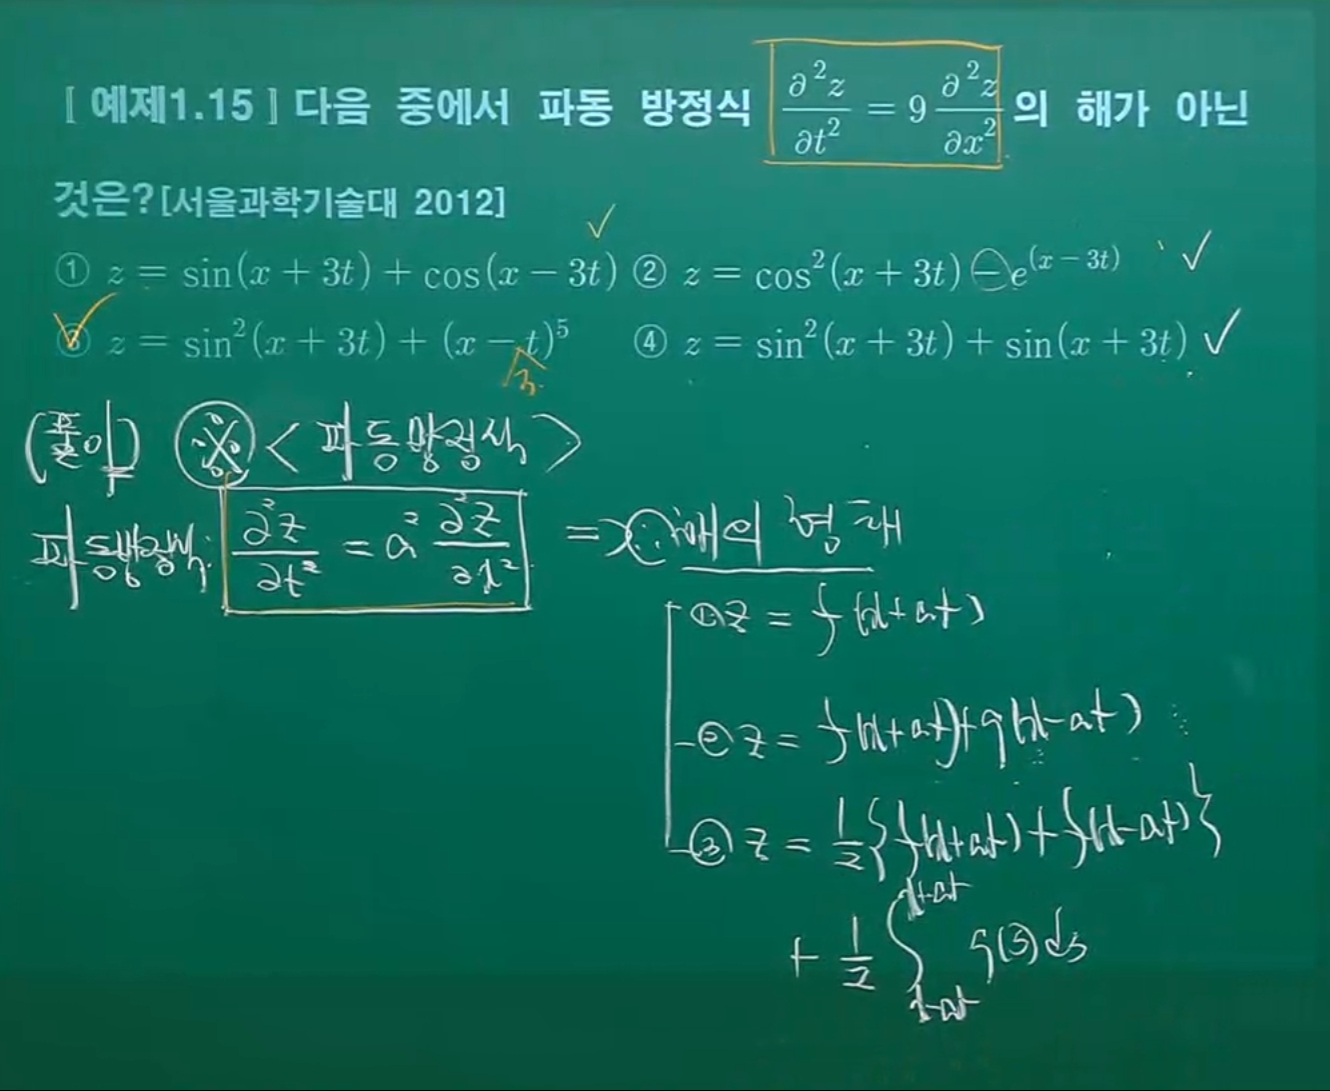 [예제1.15] 다음 중에서 파동 방정식 ∂²z/∂t² = 9 ∂²z/∂x² 의 해가 아닌
것은?[서울과학기술대 2012]
① z = sin(x + 3t) + cos(x − 3t) ② z = cos²(x + 3t) − e^(x − 3t)
③ z = sin²(x + 3t) + (x − t)⁵ ④ z = sin²(x + 3t) + sin(x + 3t)
3
(풀이) ※ < 파동방정식 >
파동방정식: ∂²z/∂t² = a² ∂²z/∂x² ⇒ 해의 형태
① z = f(x+at)
② z = f(x+at)+g(x-at)
③ z = 1/2{f(x+at)+f(x-at)}
+ 1/2 ∫_{x-at}^{x+at} g(s)ds